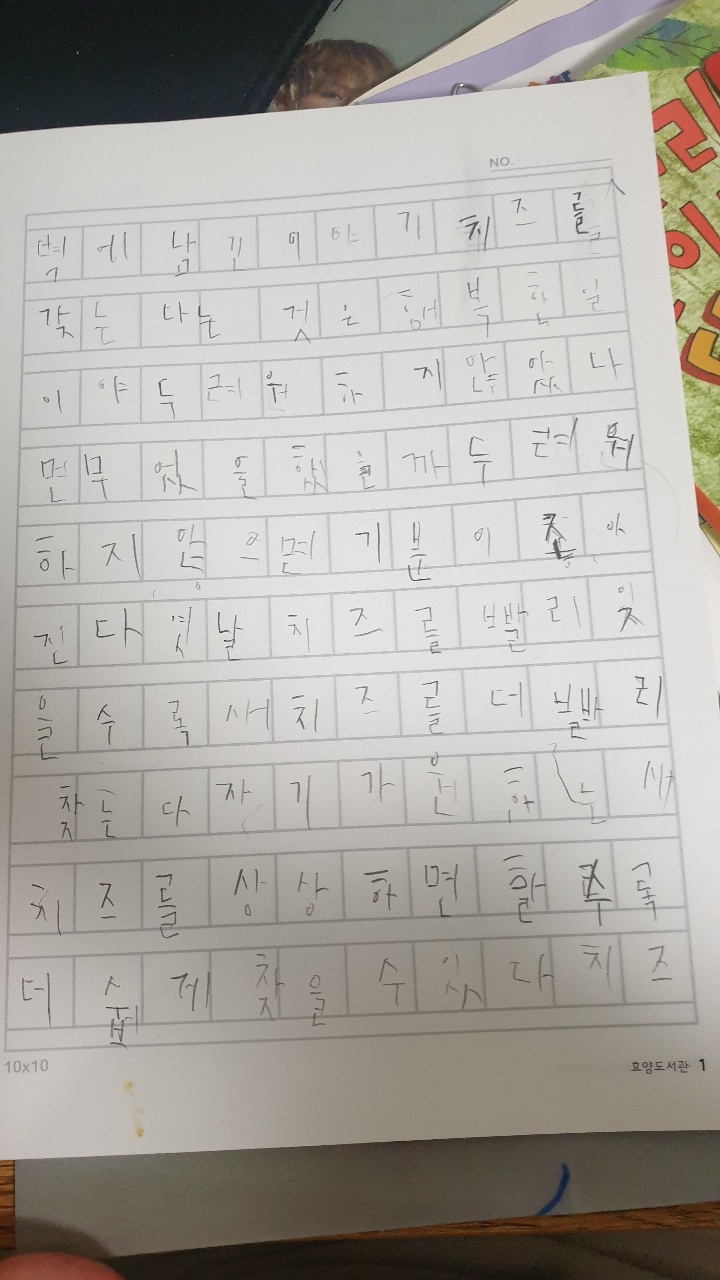 NO.
벽에 남긴 이야기 치즈를
갖는 다는 것은 행복한 일
이야 두려워 하지 않았다
면 무엇을 했을까 두려워
하지 않으면 기분이 좋아
진다 옛날 치즈를 빨리 잊
을수록 새 치즈를 더 빨리
찾는다 자기가 원하는 새
치즈를 상상하면 할수록
더 쉽게 찾을 수 있다 치즈
10x10
효양도서관 1